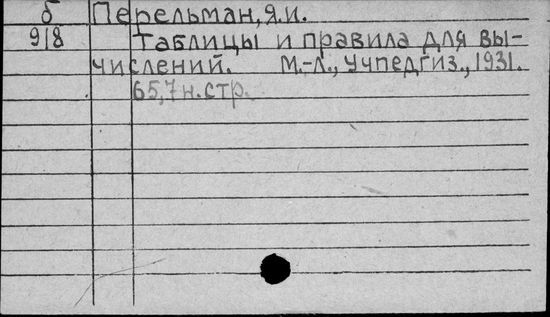 б Перельман, Я.И.
918 Таблицы и правила для вы-
числений. М.-Л., Учпедгиз., 1931.
65,7н.стр.